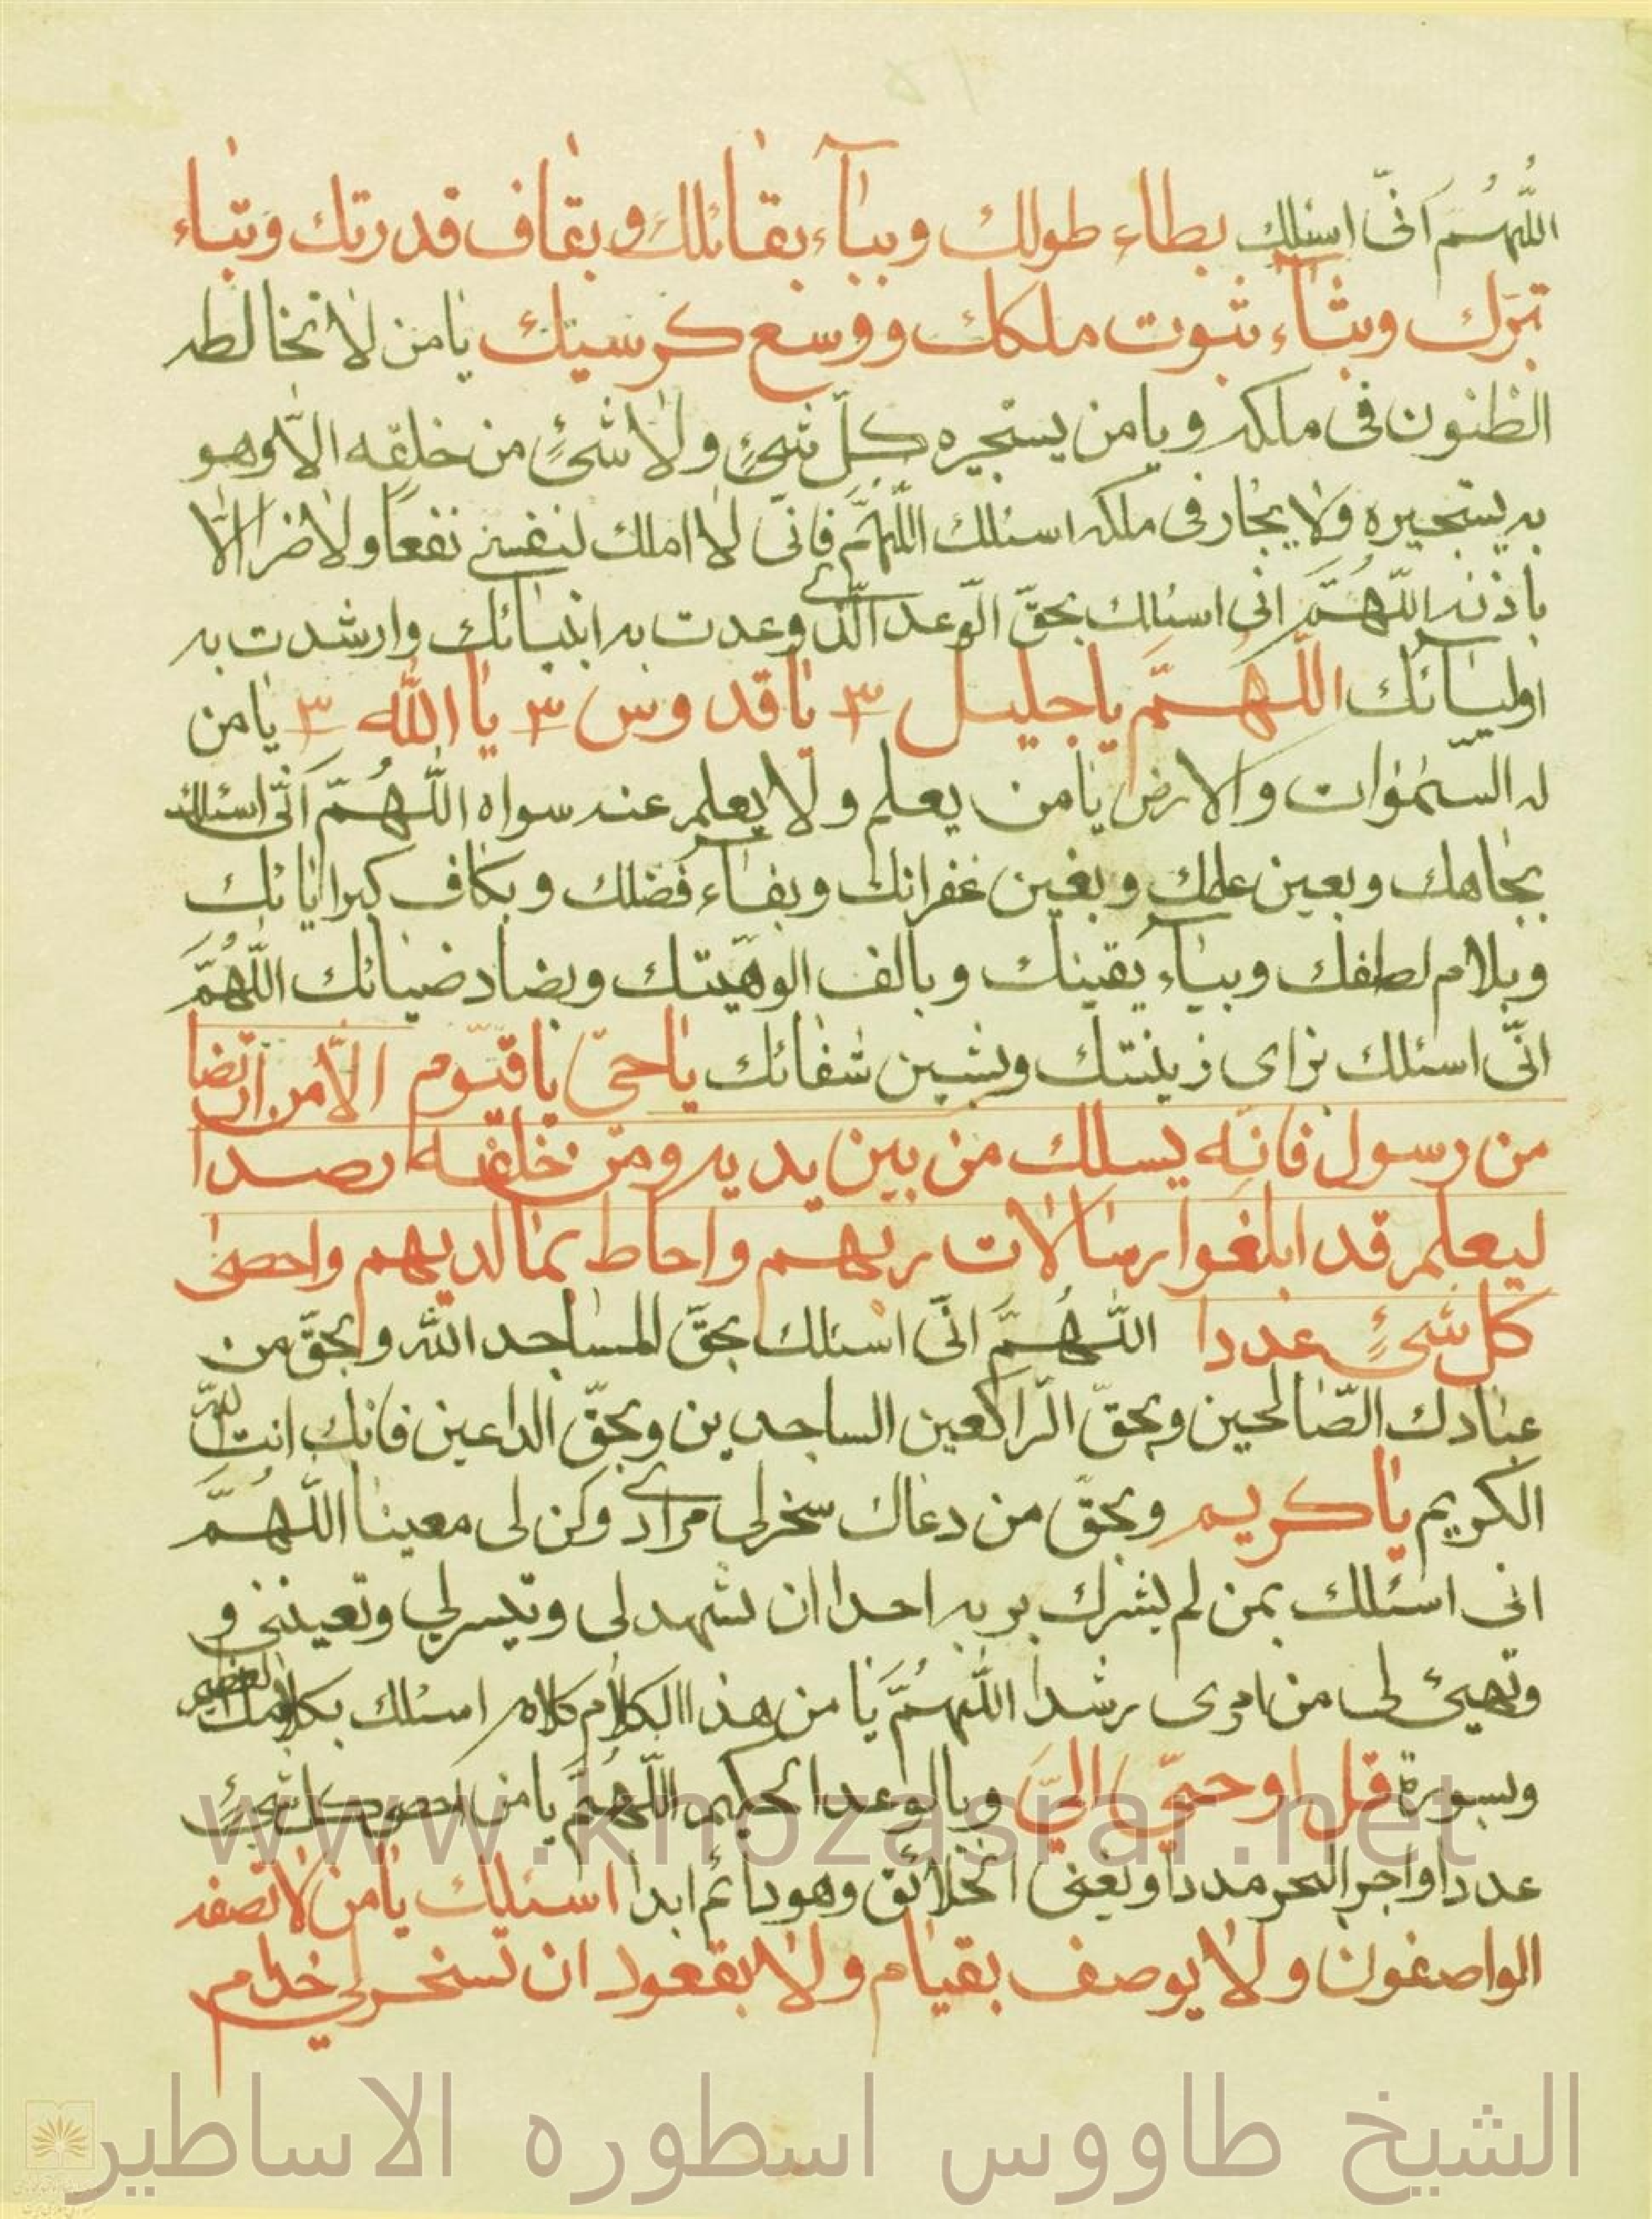 اللّٰهُمَّ انّى اسئلك بطاء طولك وبباۤء بقائلك وبقاف قدرتك وبتاء
تبرّك وبثاۤء ثبوت ملكك ووسع كرسيك يا من لا تخالطه
الظنون فى ملكه ويا من يستجيره كلّ شىءٍ ولا شىءٍ من خلقه الّا وهو
به يستجيره ولا يجار فى ملكه اسئلك اللّٰهمَّ فانّى لا املك لنفسى نفعاً ولا ضرا الّا
باذنه اللّٰهُمَّ انى اسئلك بحقّ الوعد الّذى وعدت به انبيائك وارشدت به
اوليائك اللّٰهمَّ يا جليل ٣ يا قدوس ٣ يا اللّٰه ٣ يا من
له السّمٰوات والارض يا من يعلم ولا يعلم عنه سواه اللّٰهُمَّ انّى اسئلك
بجاهك وبعين علمك وبغين غفرانك وبفاء فضلك وبكاف كبرايائك
وبلام لطفك وبياۤء يقينك وبالف الوهيّتك وبضاد ضيائك اللّٰهُمَّ
انّى اسئلك بزاى زينتك وبشين شفائك يا حىّ يا قيّوم الّا من ارتضا
من رسول فانّه يسلك من بين يديه ومن خلفه رصدا
ليعلم قد ابلغوا رسالات ربهم واحاط بما لديهم واحصى
كل شىءٍ عددا اللّٰهُمَّ انّى اسئلك بحقّ المساجد اللّٰه وبحقّ من
عبادك الصّالحين وبحقّ الرّاكعين الساجدين وبحقّ الداعين فانك انت اللّٰه
الكريم يا كريم وبحقّ من دعاك سخرلى مرادى وكن لى معينا اللّٰهُمَّ
انى اسئلك بمن لم يشرك بربه احدا ان تشهد لى وتيسرلى وتعيننى و
وتهيئ لى من امرى رشدا اللّٰهمَّ يا من هذا الكلام كلامه اسئلك بكلامك العظيم
وبسورة قل اوحىّ الىّ وبالوعد الحكيم اللّٰهُمَّ يا من احصى كل شىءٍ
عددا واجر البحر مددا ويفنى الخلائق وهو دائم ابدا اسئلك يا من لا تصفه
الواصفون ولا يوصف بقيام ولا بقعود ان تسخرلى خدّام
www.khozasrar.net
الشيخ طاووس اسطوره الاساطير